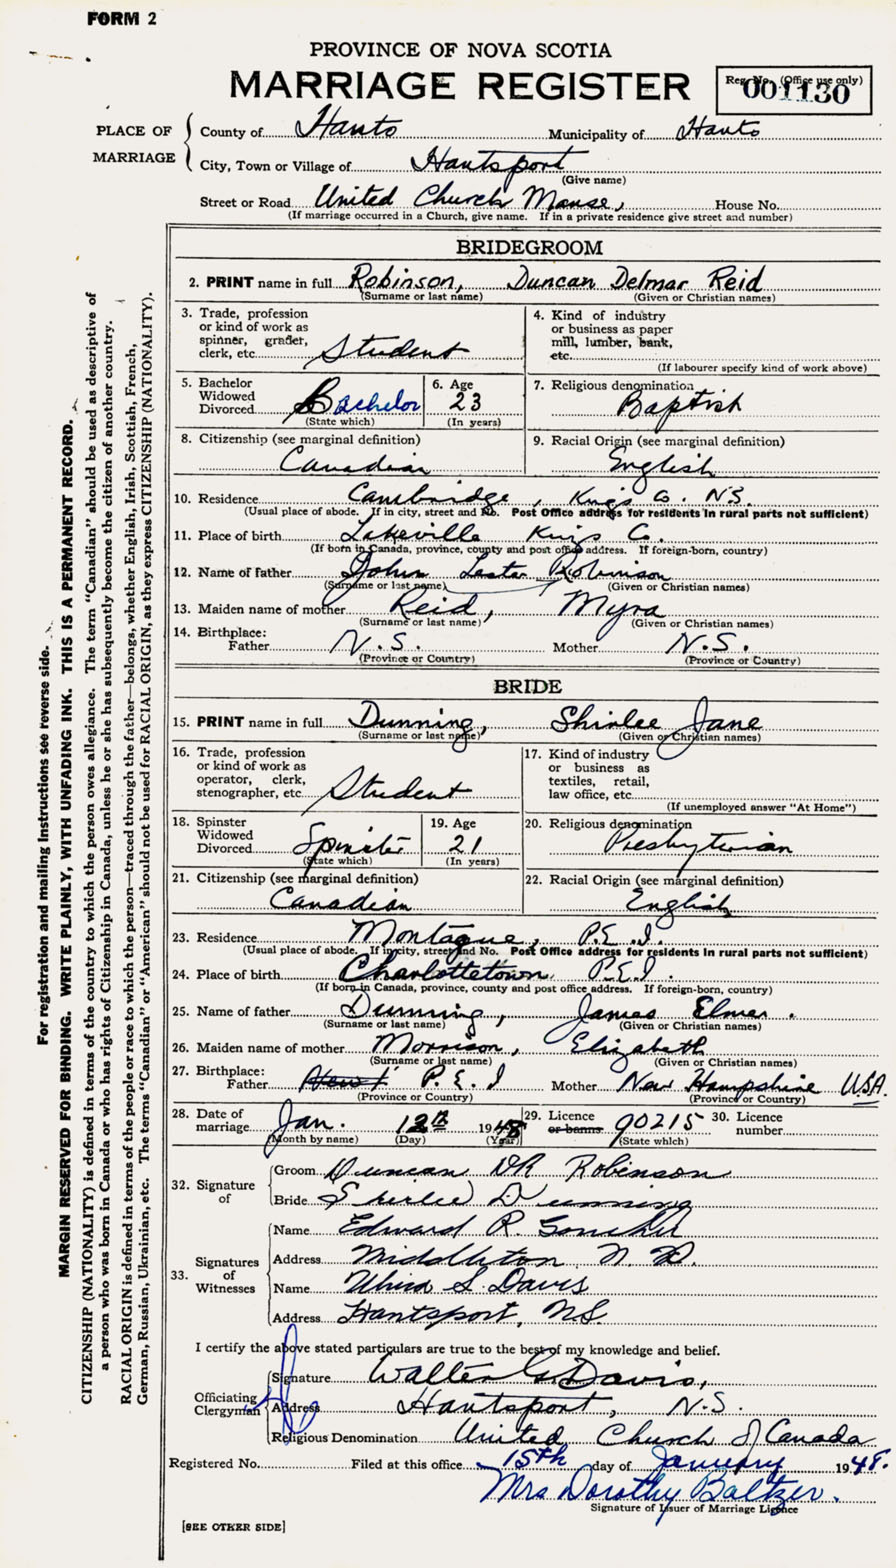 FORM 2
PROVINCE OF NOVA SCOTIA
MARRIAGE REGISTER
Reg. No. (Office use only)
001130
PLACE OF MARRIAGE
County of Hants Municipality of Hants
City, Town or Village of Hantsport
(Give name)
Street or Road United Church Manse, House No.
(If marriage occurred in a Church, give name. If in a private residence give street and number)
BRIDEGROOM
2. PRINT name in full Robinson, Duncan Delmar Reid
(Surname or last name) (Given or Christian names)
3. Trade, profession or kind of work as spinner, grader, clerk, etc. Student
4. Kind of industry or business as paper mill, lumber, bank, etc.
(If labourer specify kind of work above)
5. Bachelor Widowed Divorced Bachelor
(State which)
6. Age 23
(In years)
7. Religious denomination Baptist
8. Citizenship (see marginal definition)
Canadian
9. Racial Origin (see marginal definition)
English
10. Residence Cambridge, Kings Co. N.S.
(Usual place of abode. If in city, street and No. Post Office address for residents in rural parts not sufficient)
11. Place of birth Lakeville Kings Co.
(If born in Canada, province, county and post office address. If foreign-born, country)
12. Name of father John Lester Robinson
(Surname or last name) (Given or Christian names)
13. Maiden name of mother Reid, Myra
(Surname or last name) (Given or Christian names)
14. Birthplace:
Father N.S. Mother N.S.
(Province or Country) (Province or Country)
BRIDE
15. PRINT name in full Dunning, Shirlee Jane
(Surname or last name) (Given or Christian names)
16. Trade, profession or kind of work as operator, clerk, stenographer, etc. Student
17. Kind of industry or business as textiles, retail, law office, etc.
(If unemployed answer "At Home")
18. Spinster Widowed Divorced Spinster
(State which)
19. Age 21
(In years)
20. Religious denomination
Presbyterian
21. Citizenship (see marginal definition)
Canadian
22. Racial Origin (see marginal definition)
English
23. Residence Montague, P.E.I.
(Usual place of abode. If in city, street and No. Post Office address for residents in rural parts not sufficient)
24. Place of birth Charlottetown, P.E.I.
(If born in Canada, province, county and post office address. If foreign-born, country)
25. Name of father Dunning, James Elmer.
(Surname or last name) (Given or Christian names)
26. Maiden name of mother Morrison, Elizabeth
(Surname or last name) (Given or Christian names)
27. Birthplace:
Father P.E.I Mother New Hampshire U.S.A.
(Province or Country) (Province or Country)
28. Date of marriage Jan. 12th 1948
(Month by name) (Day) (Year)
29. Licence or banns 90215
(State which)
30. Licence number
32. Signature of
Groom Duncan DR Robinson
Bride Shirlee Dunning
33. Signatures of Witnesses
Name Edward R.
Address Middleton, N
Name S. Davis
Address Hantsport, N.S.
I certify the above stated particulars are true to the best of my knowledge and belief.
Officiating Clergyman
Signature Walter G. Davis,
Address Hantsport, N.S.
Religious Denomination United Church of Canada
Registered No. Filed at this office 15th day of January 1948.
Mrs Dorothy Baltzer.
Signature of Issuer of Marriage Licence
[SEE OTHER SIDE]
For registration and mailing instructions see reverse side.
MARGIN RESERVED FOR BINDING. WRITE PLAINLY, WITH UNFADING INK. THIS IS A PERMANENT RECORD.
CITIZENSHIP (NATIONALITY) is defined in terms of the country to which the person owes allegiance. The term "Canadian" should be used as descriptive of
a person who was born in Canada or who has rights of Citizenship in Canada, unless he or she has subsequently become the citizen of another country.
RACIAL ORIGIN is defined in terms of the people or race to which the person—traced through the father—belongs, whether English, Irish, Scottish, French,
German, Russian, Ukrainian, etc. The terms "Canadian" or "American" should not be used for RACIAL ORIGIN, as they express CITIZENSHIP (NATIONALITY).